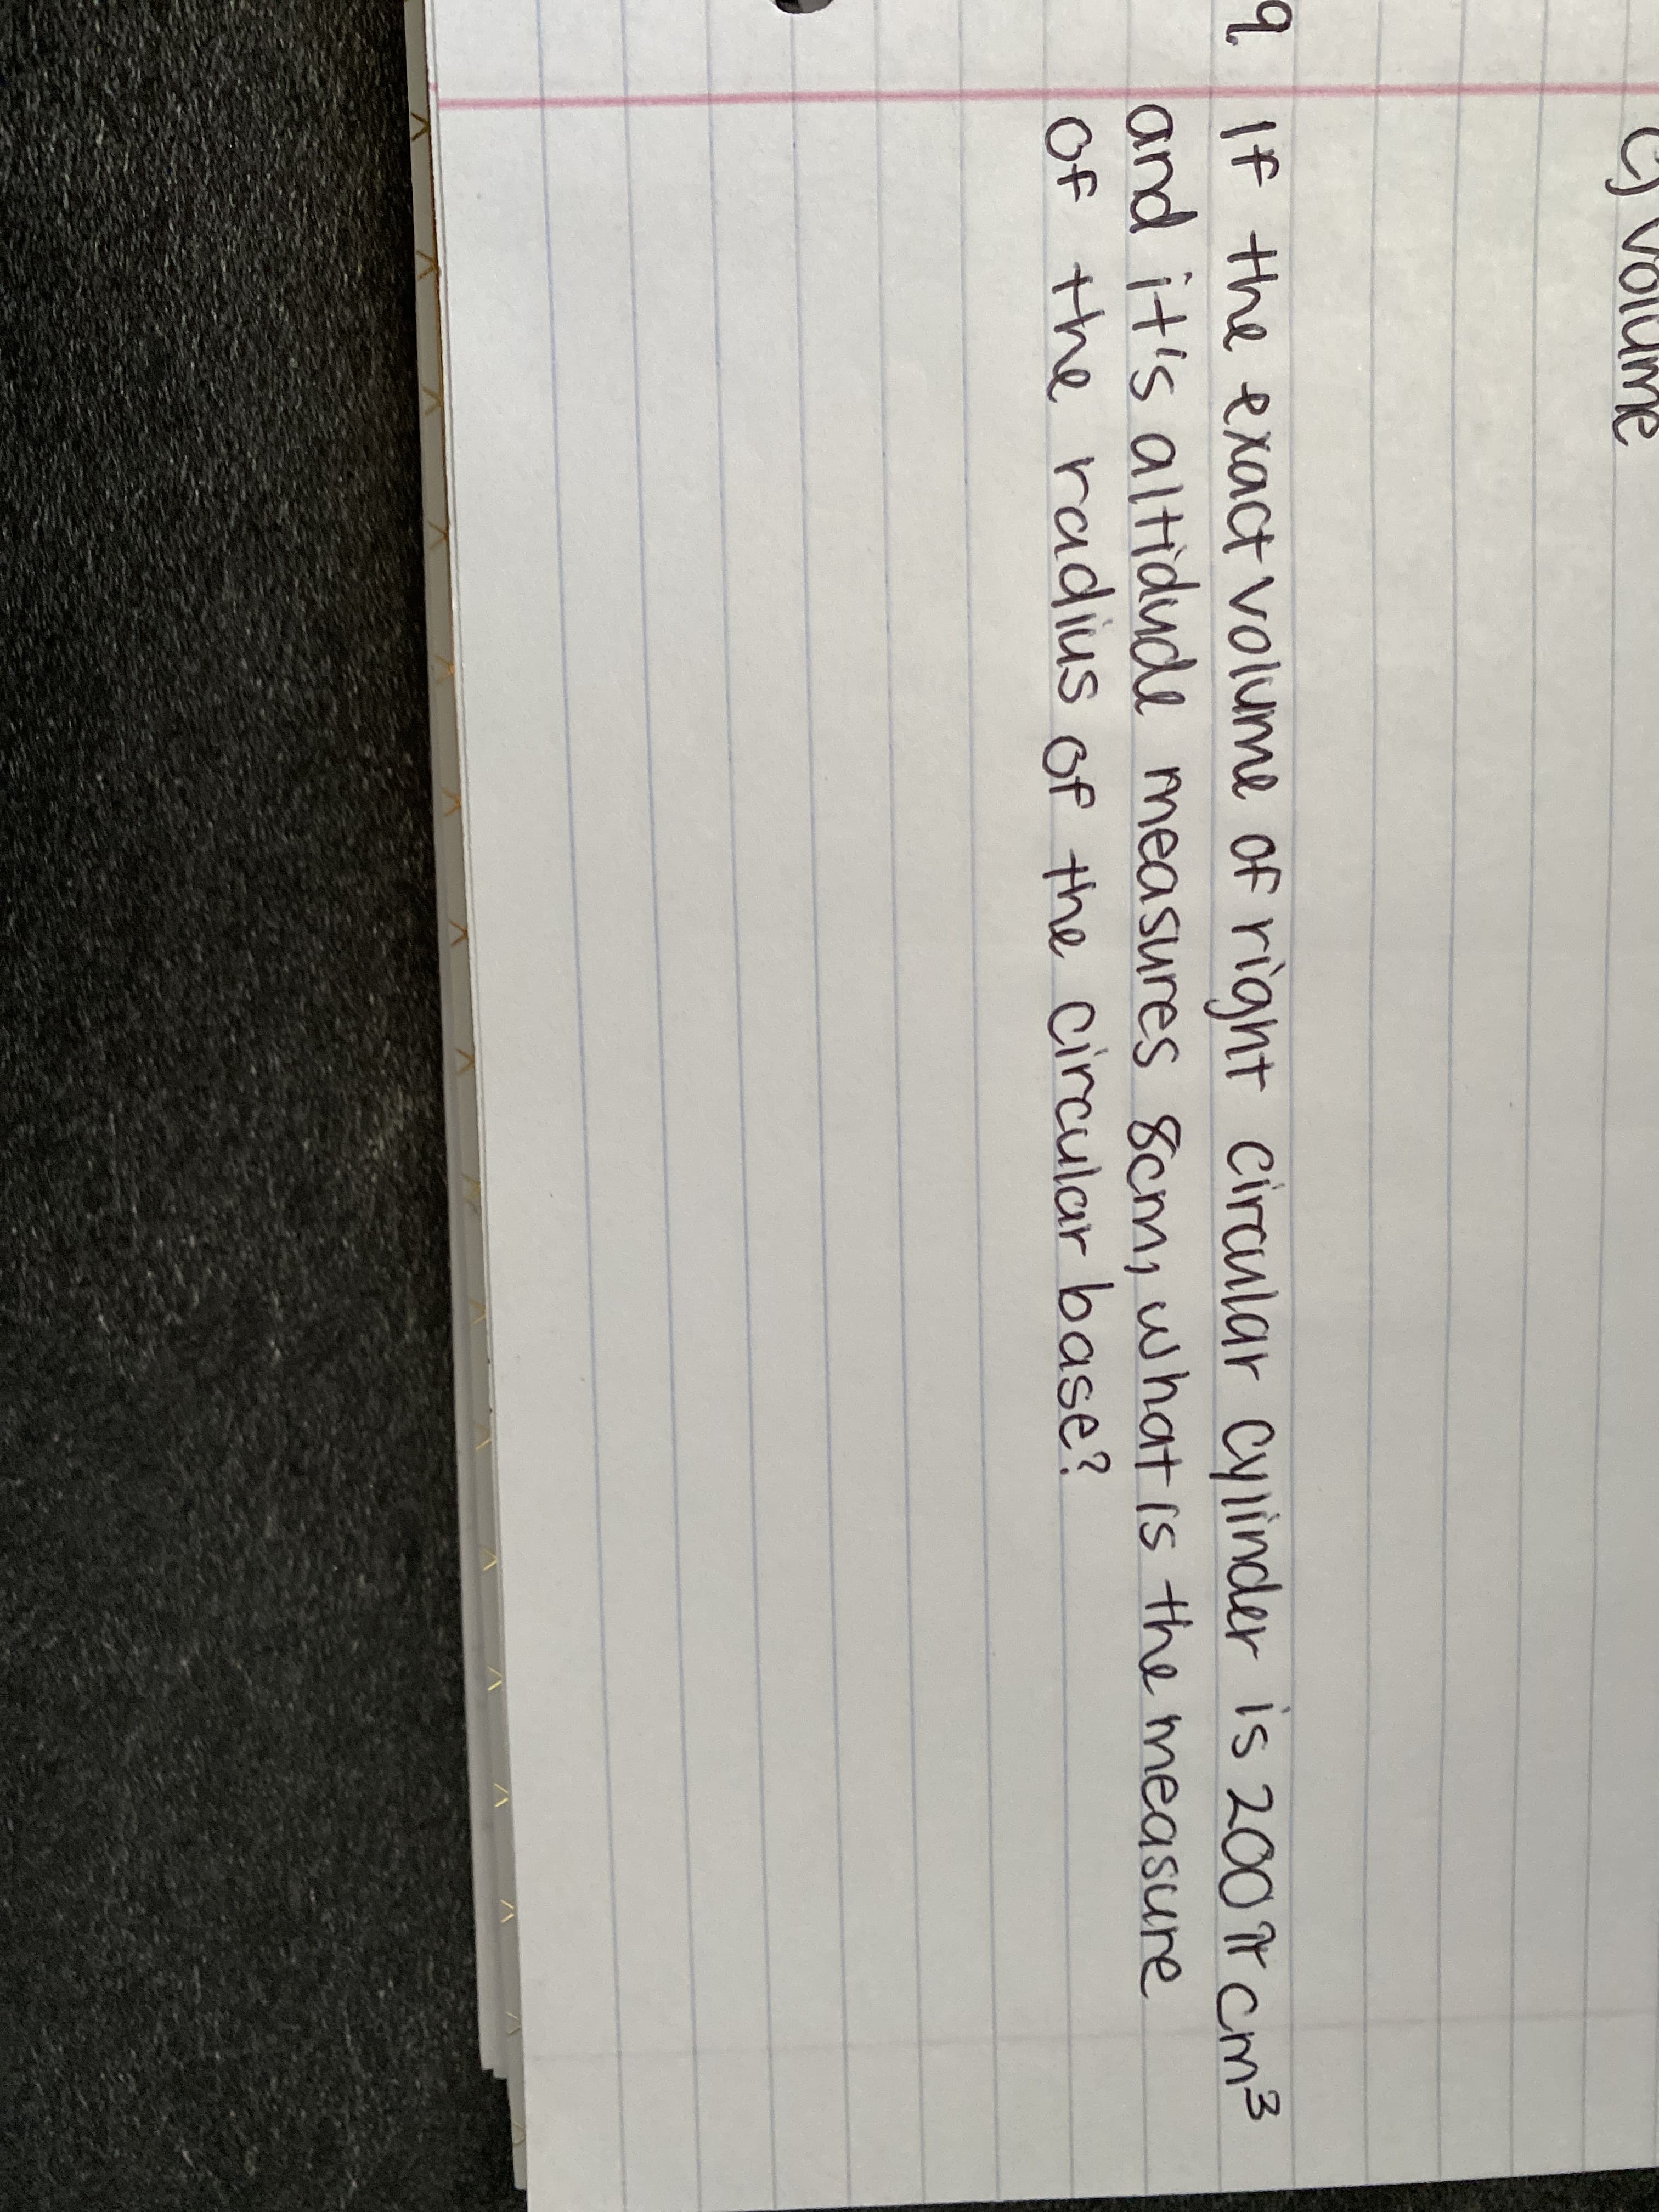 c) volume
9. If the exact volume of right circular cylinder is 200π cm³
and it's altidude measures 8cm, what is the measure
of the radius of the circular base?